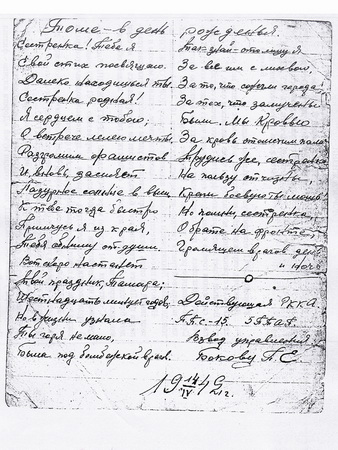 Томе в день рожденья.
Сестренка! Тебе я
Свой стих посвящаю.
Далеко находишься ты,
Сестренка родная!
Я сердцем с тобою,
О встрече лелею мечты,
Разгромим фашистов
И вновь засияет
Лазурное солнце в выси
К тебе тогда быстро
Примчусь я из края,
Тебя обниму от души.
Вот скоро настанет
Твой праздник, Тамара;
Шестнадцать минует годов,
Но в жизни узнала
Ты горя немало,
Была под бомбежкой врагов.
Так знай отомщу я
За все им с лихвою,
За то, что сожгли города
За тех, что замучены
были. Мы кровью
За кровь отомстим
Трудись же, сестренка,
На пользу отчизны,
Крепи боевую ты мощь
Но помни, сестренка,
О брате на фронте,
Громящем врагов день
и ночь
Действующая РККА.
ППС-15. 5
Взвод управления
Бокову П. С
19 14/IV 42 г.